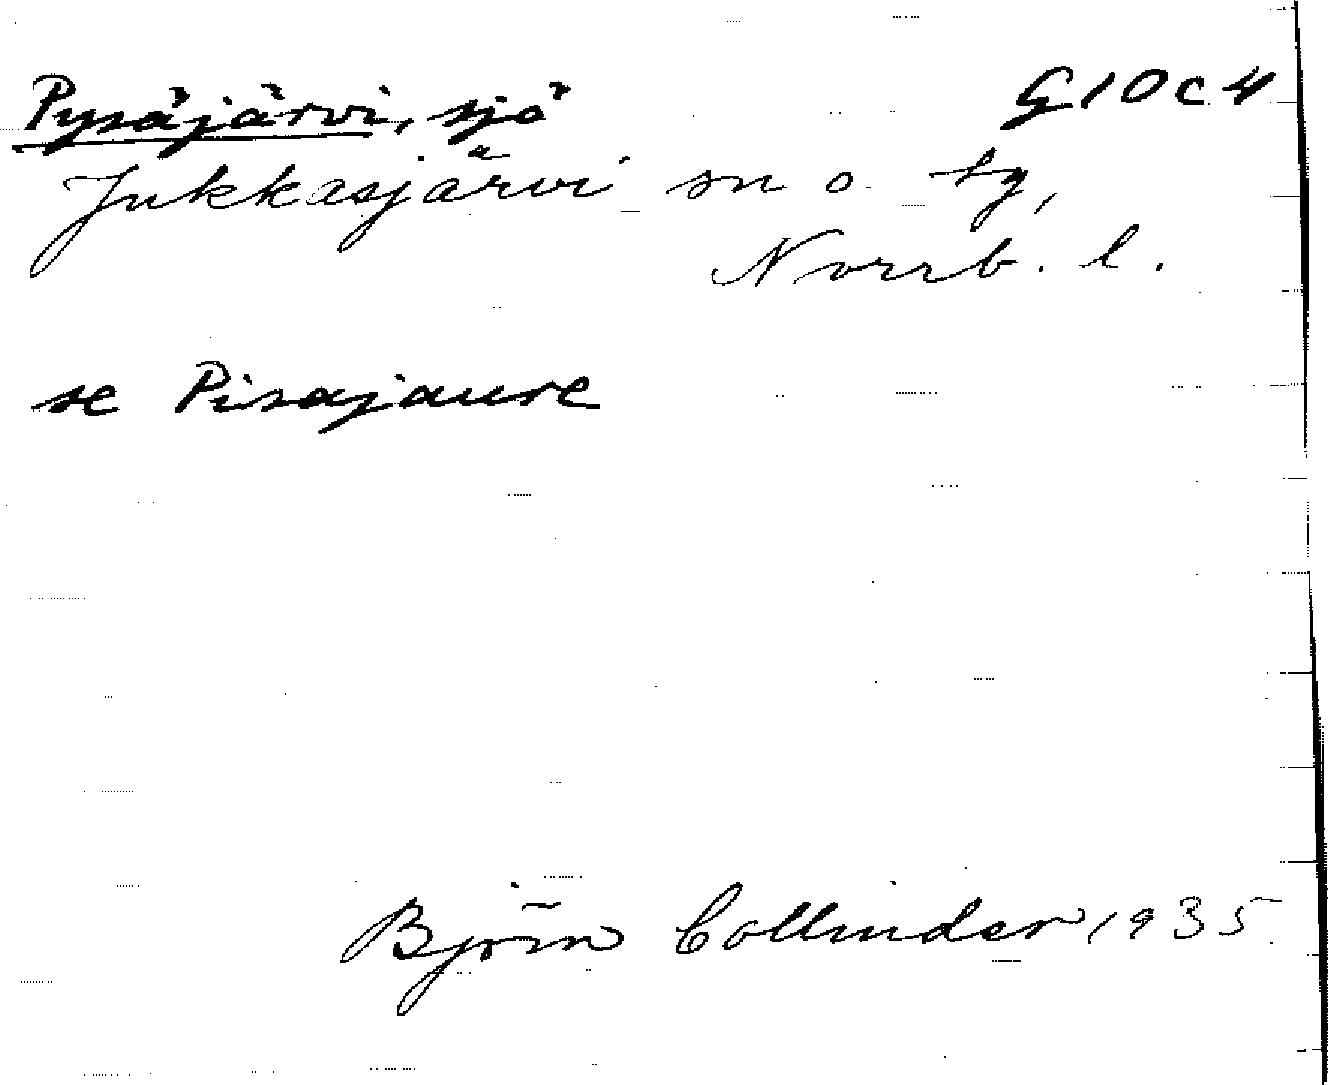 Pysäjärvi, sjö G10c4
Jukkasjärvi sn o. tg,
Norrb. l.
se Pisajaure
Björn Collinder 1935